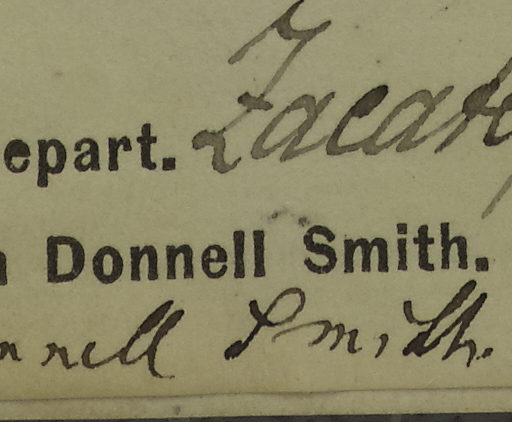 epart. Zacate
Donnell Smith.
nnell Smith.